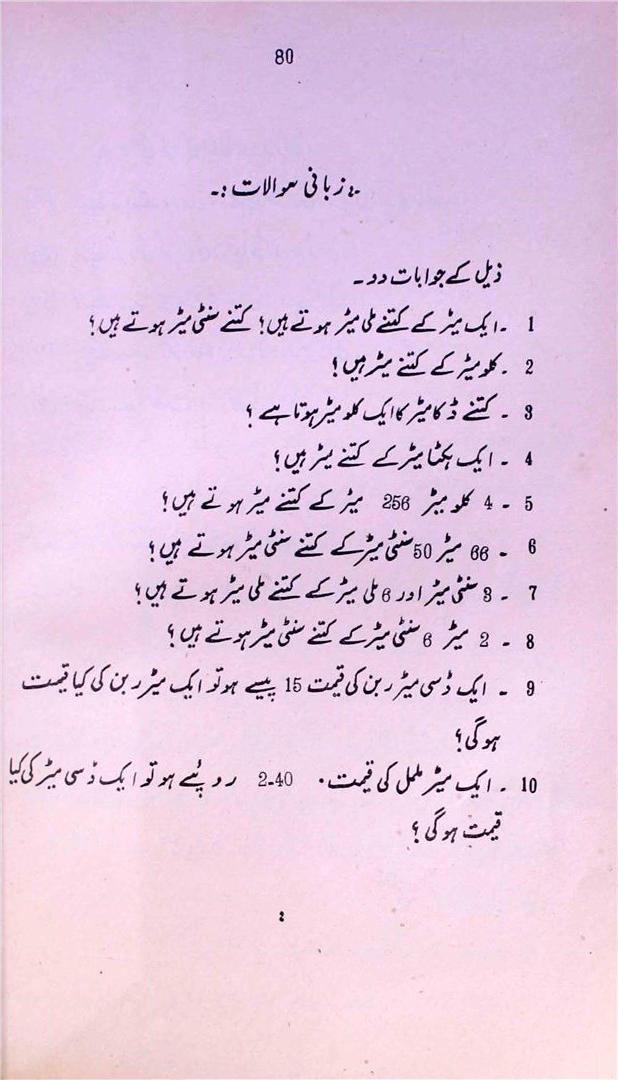 80
:۔ زبانی سوالات :۔
ذیل کے جوابات دو ۔
1 ۔ ایک میٹر کے کتنے ملی میٹر ہوتے ہیں؟ کتنے سنٹی میٹر ہوتے ہیں؟
2 ۔ کلومیٹر کے کتنے میٹر ہیں؟
3 ۔ کتنے ڈکا میٹر کا ایک کلو میٹر ہوتا ہے ؟
4 ۔ ایک ہکٹا میٹر کے کتنے میٹر ہیں؟
5 ۔ 4 کلو میٹر 256 میٹر کے کتنے میٹر ہوتے ہیں؟
6 ۔ 66 میٹر 50 سنٹی میٹر کے کتنے سنٹی میٹر ہوتے ہیں؟
7 ۔ 3 سنٹی میٹر اور 6 ملی میٹر کے کتنے ملی میٹر ہوتے ہیں؟
8 ۔ 2 میٹر 6 سنٹی میٹر کے کتنے سنٹی میٹر ہوتے ہیں؟
9 ۔ ایک ڈسی میٹر ربن کی قیمت 15 پیسے ہو تو ایک میٹر ربن کی کیا قیمت
ہوگی؟
10 ۔ ایک میٹر ململ کی قیمت ۔ 2-40 روپئے ہو تو ایک ڈسی میٹر کی کیا
قیمت ہوگی ؟